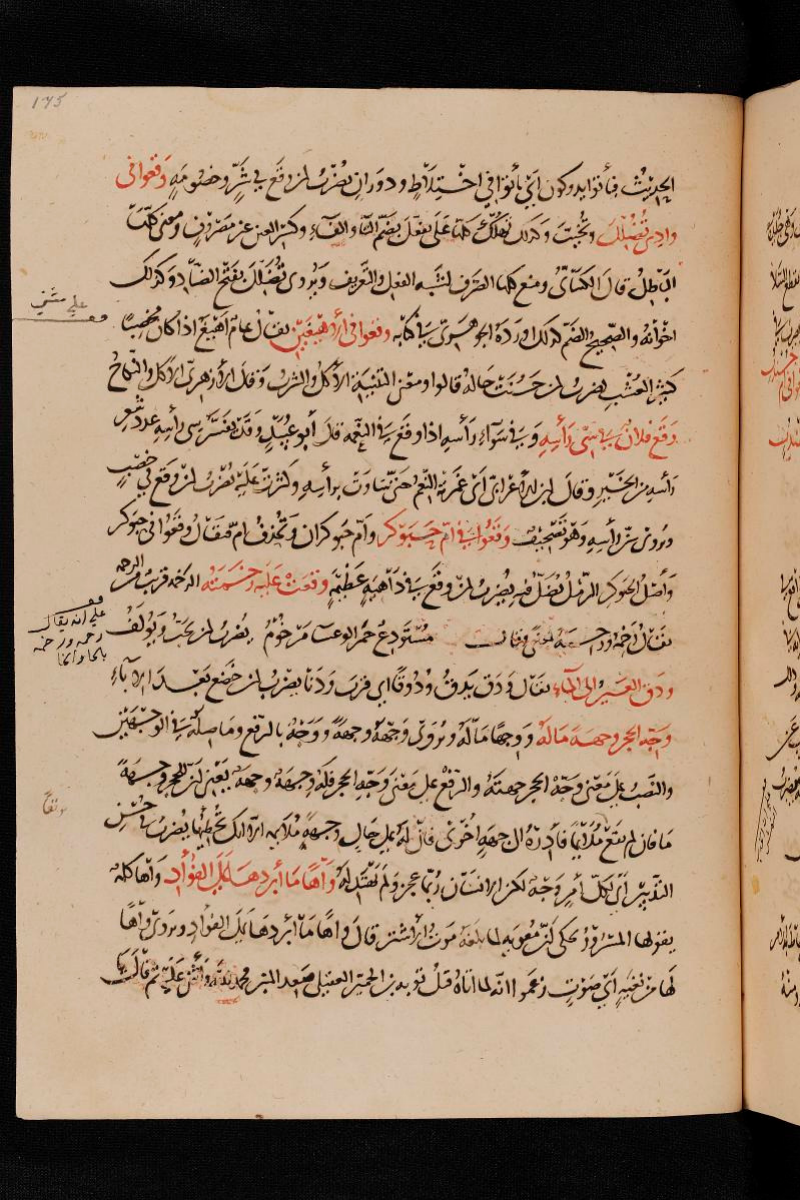 175
الحديث فباتوا يدوكون اي باتوا في اختلاط ودوران يضرب لمن وقع في شر وخصومة وقعوا في
وادي تضلل وتخيب وكذلك تهلك كلها على تفعل بضم التاء والفاء وكسر العين غير مصروف ومعنى كلها
الباطل قال الكسائي ومنع كلها الصرف لشبه الفعل والتعريف ويروى تضلل بفتح الضاد وكذلك
اخواته والصحيح الضم كذلك اورده الجوهري في كتابه وقعوا في الاهيغين يقال عام اهيغ اذا كان مخصبا
كثير العشب يضرب لمن حسنت حاله قالوا ومعنى التثنية الاكل والشرب وقال الازهري الاكل والنكاح
وقع فلان في سي رأسه وفي سواء رأسه اذا وقع في النعمة قال ابو عبيد وقد يفسر سي رأسه عدد شعر
رأسه من الخير وقال ابن الاعرابي اي غمرته النعم حتى تساوت برأسه وكثرت عليه يضرب لمن وقع في خصب
ويروى سن رأسه وهو تصحيف وقعوا في ام حبوكر وام حبوكران وتحذف ام فيقال وقعوا في حبوكر
واصل الحبوكر الرمل يضل فيه يضرب لمن وقع في داهية عظيمة وقعت عليه رخمته الرخمة قريب من الرحمة
يقال رخمه ورحمه بمعنى وقال مستودع خمر الوعساء مرخوم يضرب لمن يحب ويؤلف
ودق العير الى الماء يقال ودق يدق ودوقا اي قرب ودنا يضرب لمن خضع بعد الاباء
وجه الحجر وجهة ماله ووجها ماله ويروى وجهة ووجهة ووجه بالرفع وما صلة في الوجهين
والنصب على معنى وجه الحجر جهته والرفع على معنى وجه الحجر فله وجهة وجهة يعني ان للحجر وجهة
ما فان لم يقع ملائما فادره الى جهة اخرى فان له على حال وجهة ملايمة الا انك تخطئها يضرب في حسن
التدبير اي لكل امر وجه لكن الانسان ربما عجز ولم يهتد له واها ما ابردها على الفؤاد واها كلمة
يقولها المسرور يحكى ان معوية لما بلغه موت الاشتر قال واها ما ابردها على الفؤاد ويروى واها
لها من نغية اي صوت زعموا انه لما اتاه قتل توبة بن الحمير العقيلي صعد المنبر فحمد الله واثنى عليه ثم قال
على انه يقال
رحمه ورخمه
بالحاء والخاء